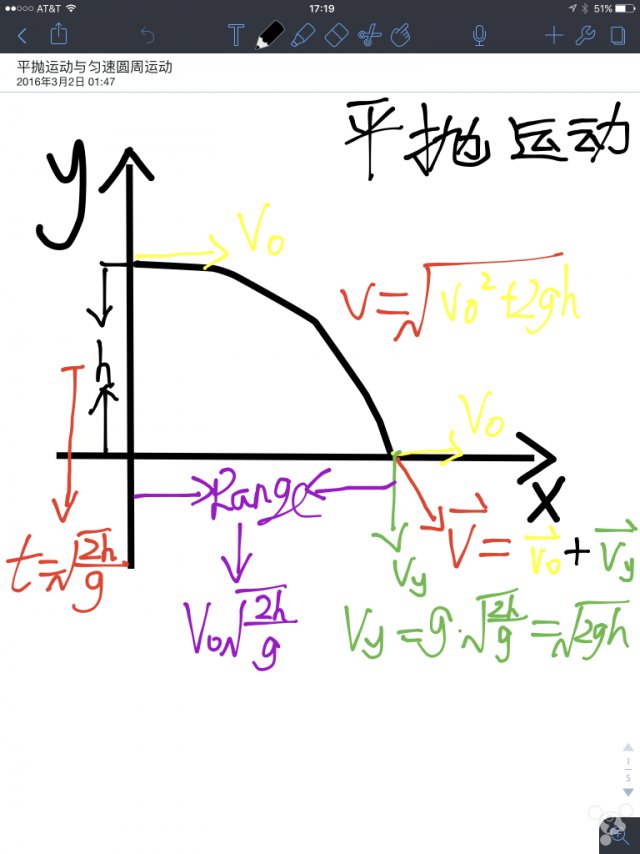 AT&T 17:19 51%
平抛运动与匀速圆周运动
2016年3月2日 01:47
T
平抛运动
y
V₀
V=√(V₀²+2gh)
h
V₀
Range
x
t=√(2h/g)
V₀√(2h/g)
Vy
V⃗=V⃗₀+V⃗y
Vy=g·√(2h/g)=√(2gh)
1
5